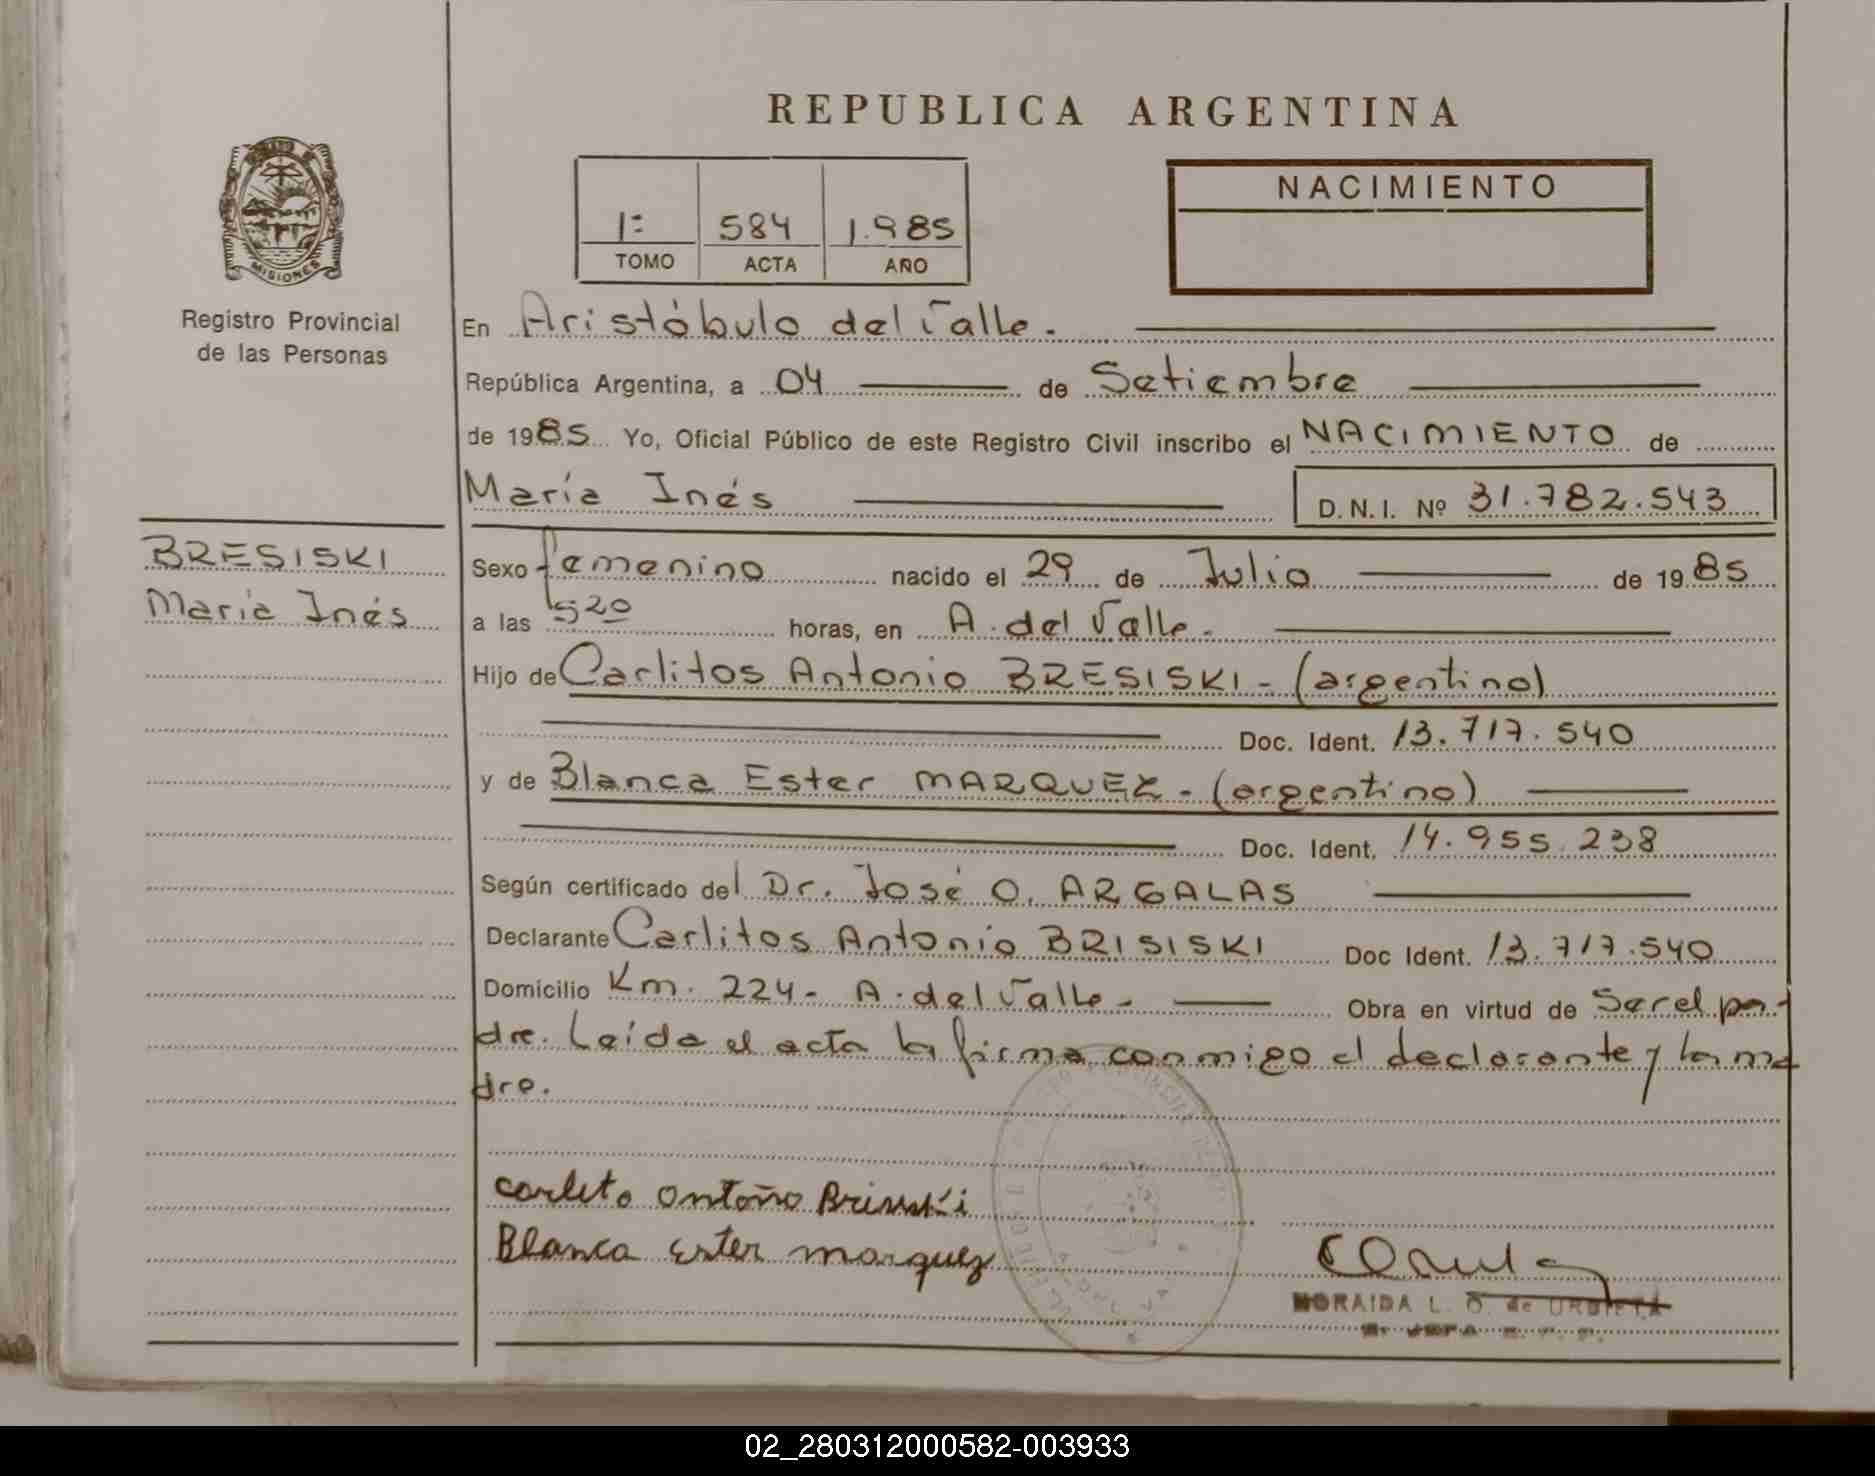 REPUBLICA ARGENTINA
MISIONES
Registro Provincial
de las Personas
1º
584
1.985
TOMO
ACTA
AÑO
NACIMIENTO
En Aristóbulo del Valle.
República Argentina, a 04 de Setiembre
de 1985 Yo, Oficial Público de este Registro Civil inscribo el NACIMIENTO de
María Inés D.N.I. Nº 31.782.543
BRESISKI
María Inés
Sexo femenino nacido el 29 de Julio de 1985
a las 520 horas, en A. del Valle.
Hijo de Carlitos Antonio BRESISKI - (argentino)
Doc. Ident. 13.717.540
y de Blanca Ester MARQUEZ - (argentino)
Doc. Ident. 14.955.238
Según certificado del Dr. José O. ARGALAS
Declarante Carlitos Antonio BRISISKI Doc Ident. 13.717.540
Domicilio Km. 224 - A. del Valle - Obra en virtud de Ser el pa-
dre. Leída el acta la firma conmigo el declarante y la ma
dre.
carlito antoño Brisiski
Blanca Ester marquez
NORAIDA L. O. de URBIETA
02_280312000582-003933